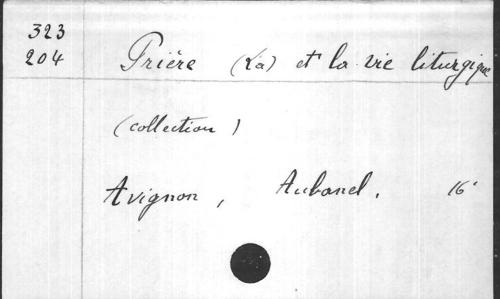 323
204
Prière (La) et la vie liturgique
(collection)
Avignon, Aubanel. 16°